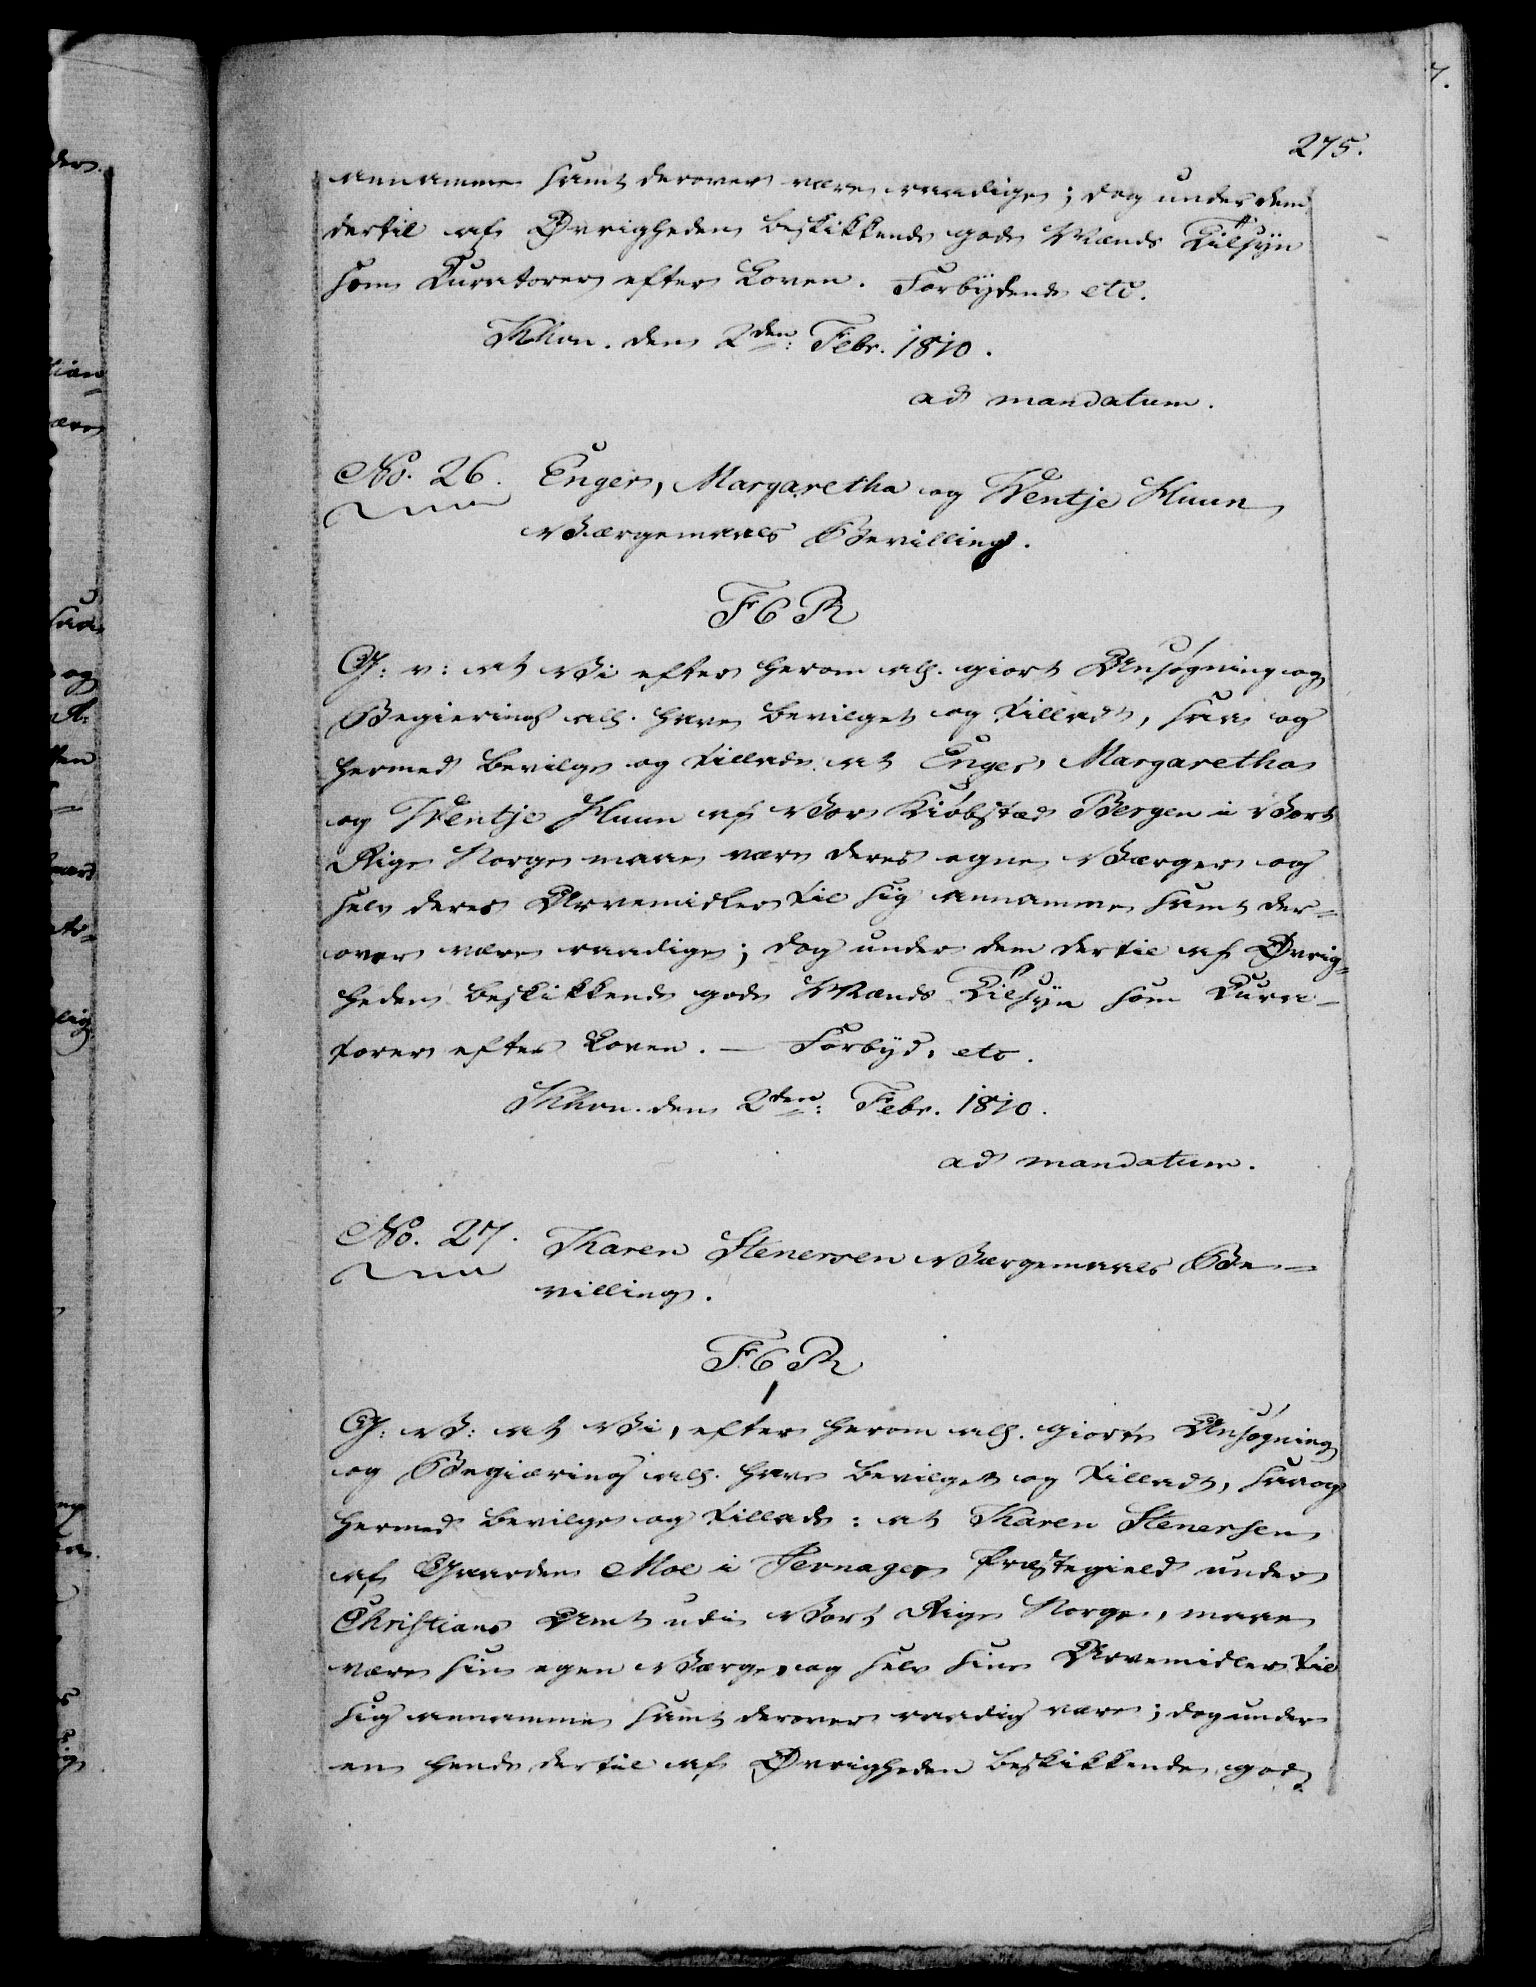 275.
annamme samt derover være raadige; dog under dem
dertil af Øvrigheden beskikkende gode Mænds Tilsyn
som Curatorer efter Loven. Forbydende etc.
Khvn. den 2den Febr. 1810.
ad mandatum.
No. 26. Enger, Margaretha og Wentje Kuun
Værgemaals Bevilling.
F6R
G: v: at Vi efter herom all. giort Ansøgning og
Begiering all. have bevilget og tilladt, saa og
hermed bevilge og tillade at Enger, Margaretha
og Wentje Kuun af Vor Kiøbstad Bergen i Vort
Rige Norge maae være deres egne Værger og
selv deres Arvemidler til sig annamme samt der=
over være raadige; dog under dem dertil af Øvrig=
heden beskikkende gode Mænds Tilsyn som Cura-
torer efter Loven. — Forbyd. etc.
Khvn. den 2den: Febr. 1810.
ad mandatum.
No. 27. Karen Stenersen Værgemaals Be=
villing.
F6R
G: V: at Vi, efter herom all. giorte Ansøgning
og Begiæring all. have bevilget og tilladt, saa og
hermed bevilge og tillade: at Karen Stenersen
af Gaarden Moe i Jevnager Præstegield under
Christians Amt udi Vort Rige Norge, maae
være sin egen Værge, og selv sine Arvemidler til
sig annamme samt derover raadig være; dog under
en hende dertil af Øvrigheden beskikkende god